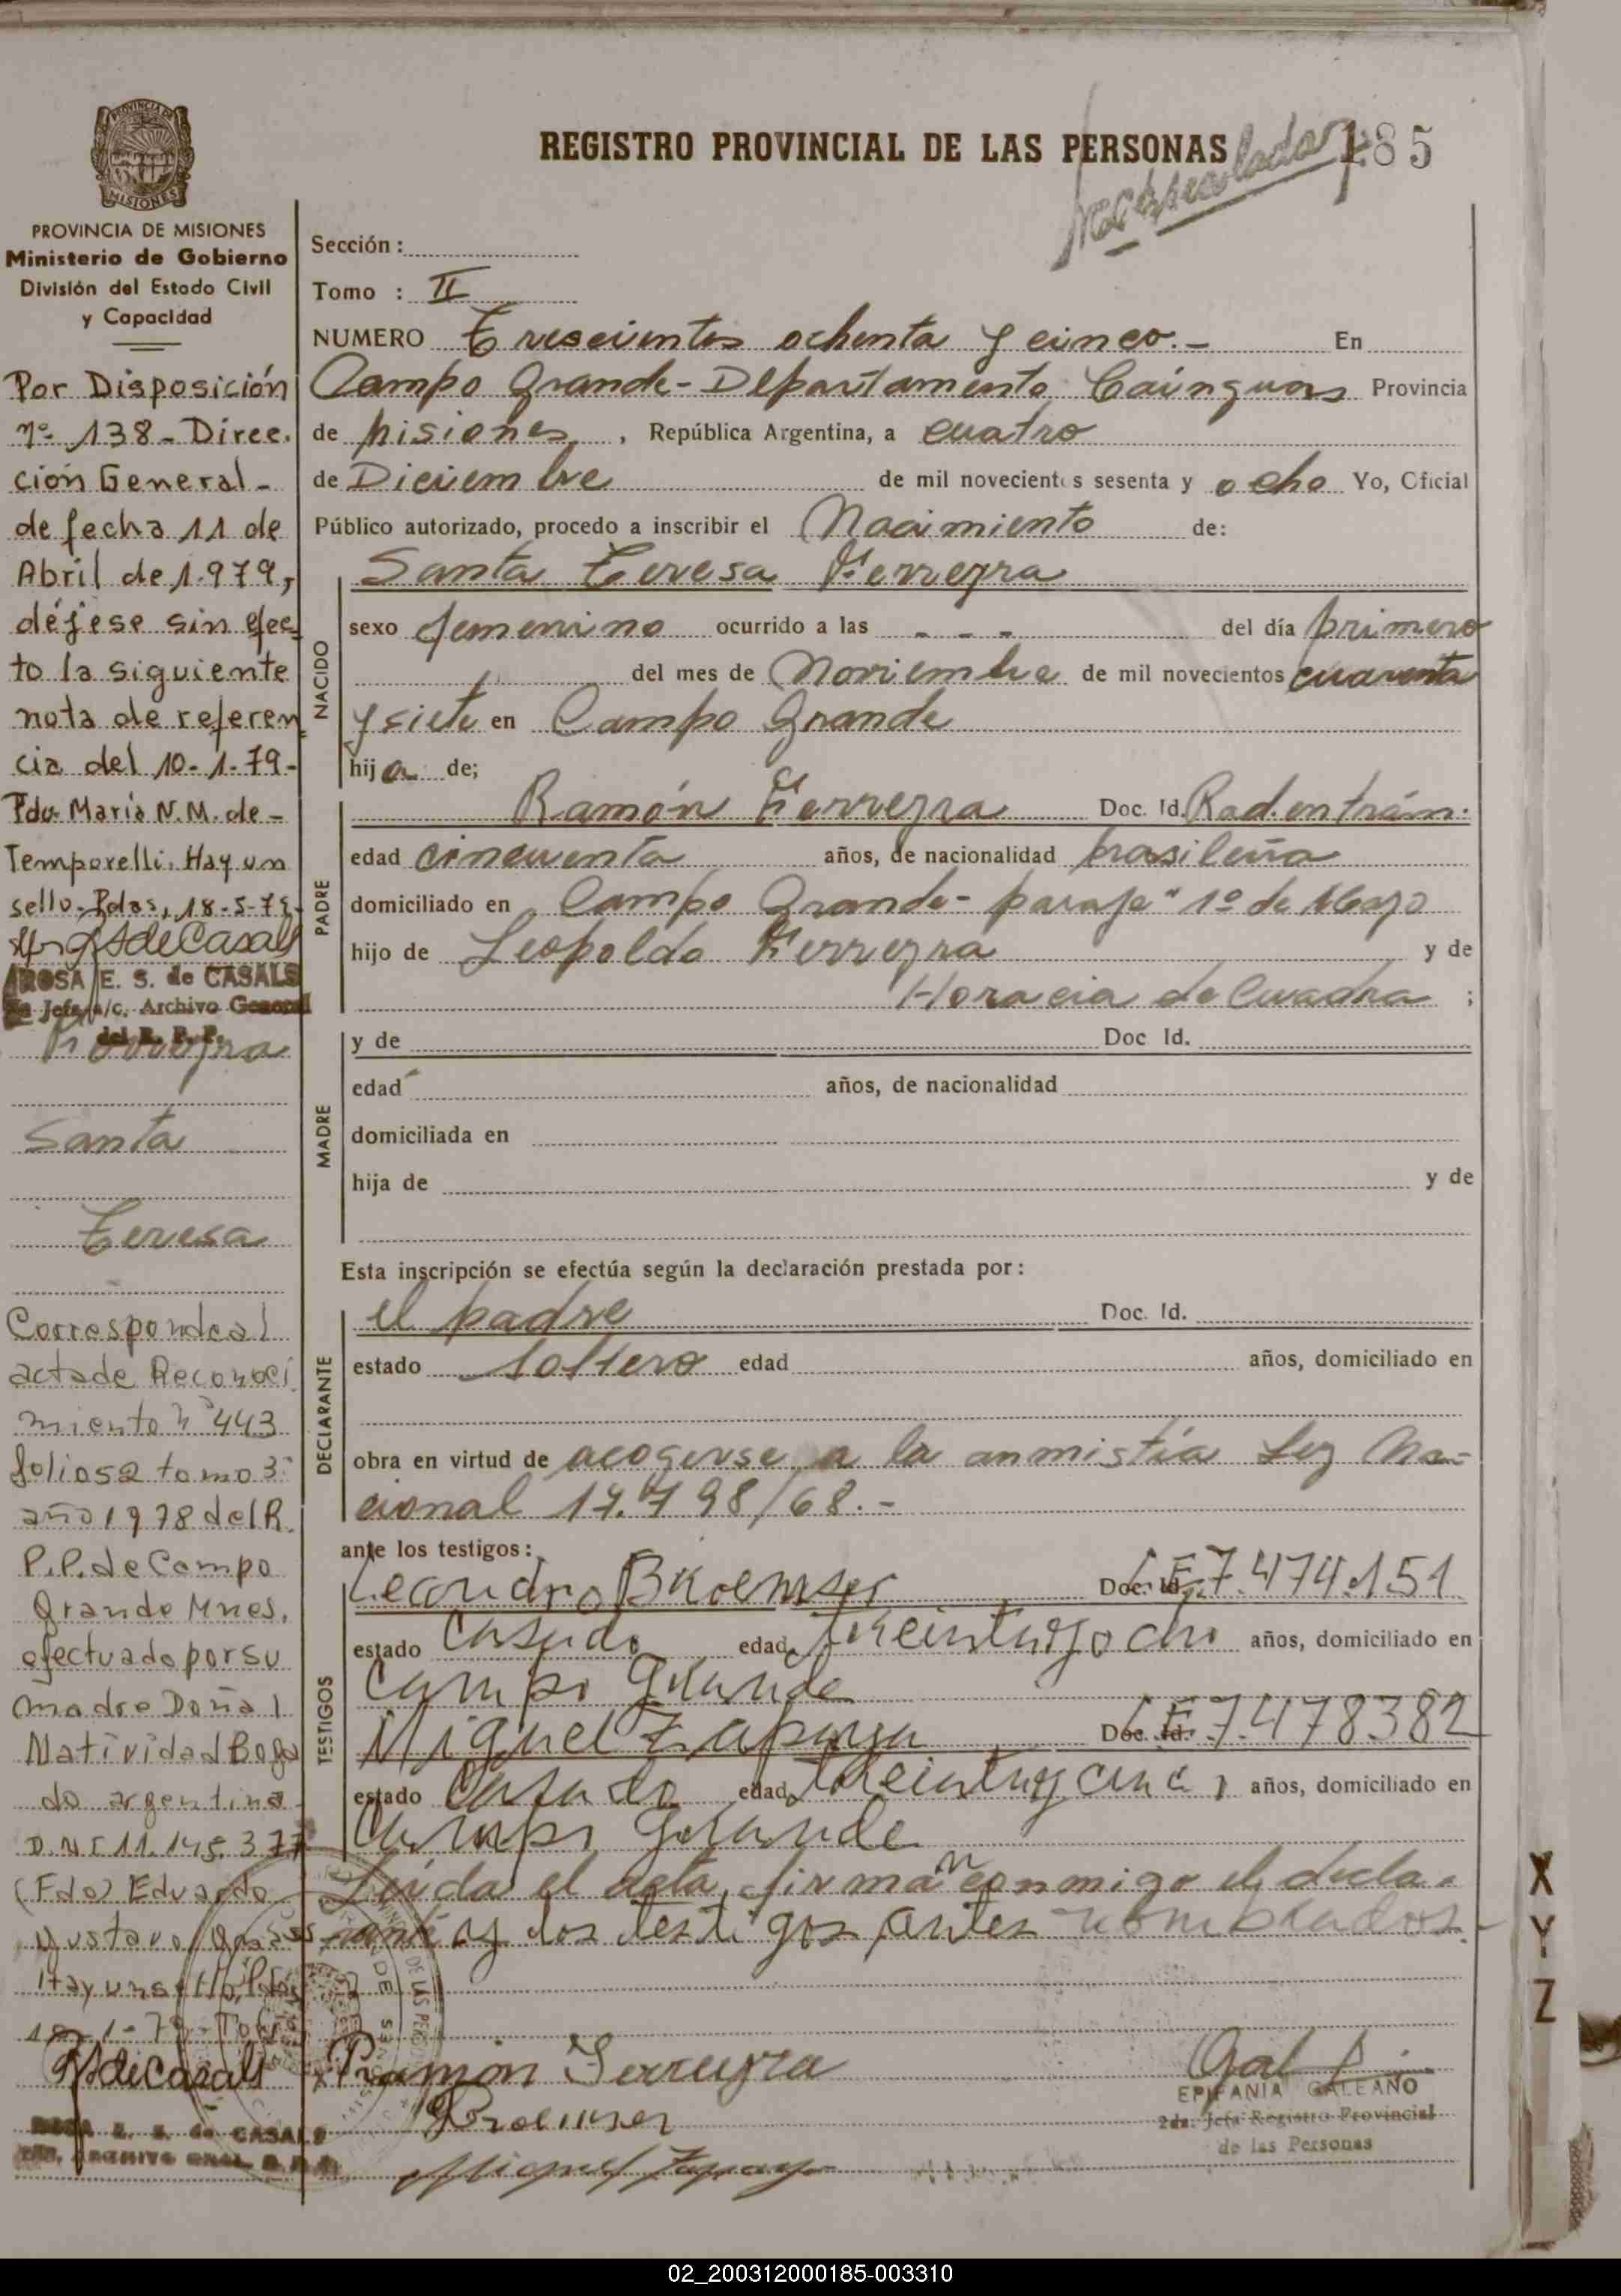 REGISTRO PROVINCIAL DE LAS PERSONAS
185
PROVINCIA DE MISIONES
Ministerio de Gobierno
División del Estado Civil
y Capacidad
Por Disposición
Nº 138 - Direc.
ción General -
de fecha 11 de
Abril de 1.979,
déjese sin efec
to la siguiente
nota de referen
cia del 10-1-79-
Fdo. María N.M. de -
Temporelli. Hay un
sello. Pdas, 18-5-79.
ROSA E. S. de CASALS
Jefa a/c. Archivo General
del R. P. P.
Ferreyra
Santa
Teresa
Corresponde al
acta de Reconoci
miento Nº 443
folio 52 tomo 3º
año 1978 del R.
P.P. de Campo
Grande Mnes.
efectuado por su
madre Doña
Natividad Boga
do argentina
D.N.I 11.145.377
(Fdo) Eduardo
Gustavo
Hay un sello, Pdas
10-1-79-
ROSA E. S. de CASALS
Sección :
Tomo : II
NUMERO Trescientos ochenta y cinco.- En
Campo Grande - Departamento Cainguas Provincia
de Misiones, República Argentina, a cuatro
de Diciembre de mil novecientos sesenta y ocho Yo, Oficial
Público autorizado, procedo a inscribir el Nacimiento de:
Santa Teresa Ferreyra
NACIDO
sexo femenino ocurrido a las - - - del día primero
del mes de Noviembre de mil novecientos cuarenta
y siete en Campo Grande
hija de;
PADRE
Ramón Ferreyra Doc. Id. Rad. en trám.
edad cincuenta años, de nacionalidad brasileña
domiciliado en Campo Grande - paraje "1º de Mayo
hijo de Leopoldo Ferreyra y de
Horacia de Cuadra ;
MADRE
y de Doc Id.
edad años, de nacionalidad
domiciliada en
hija de y de
Esta inscripción se efectúa según la declaración prestada por :
DECLARANTE
el padre Doc. Id.
estado soltero edad años, domiciliado en
obra en virtud de acogerse a la anmistía Ley Na-
cional 17.798/68.-
ante los testigos :
TESTIGOS
Leandro Doc. Id. L E 7.474.151
estado Casado edad treinta y ocho años, domiciliado en
Campo Grande
Miguel Zapaya Doc. Id. L E 7.478382
estado Casado edad treinta y cinco años, domiciliado en
Campo Grande
Leída el acta, firman conmigo el decla-
rante y los testigos antes nombrados.
Ramón Ferreyra
Miguel Zapaya
EPIFANIA GALEANO
2da. Jefa Registro Provincial
de las Personas
X
Y
Z
02_200312000185-003310